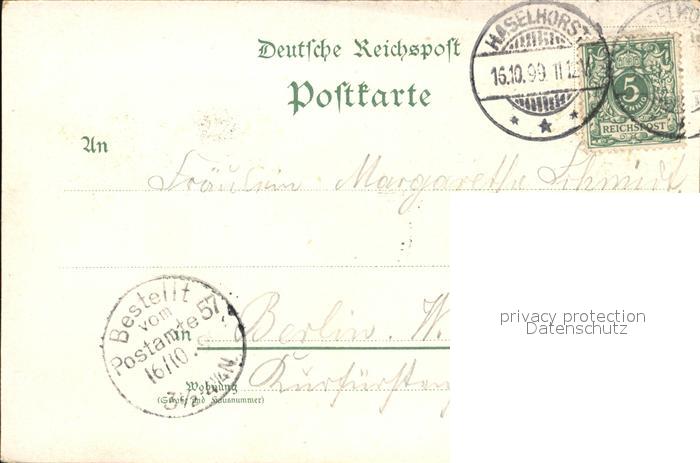 Deutsche Reichspost
Postkarte
HASELHORST
16.10.99.11-12V.
5
PFENNIG
REICHSPOST
An
Fräulein Margarethe Schmidt
privacy protection
Datenschutz
Bestellt
vom
Postamte 57
16/10
3½-4¼N.
in Berlin. W.
Kurfürsten
Wohnung
(Straße und Hausnummer)